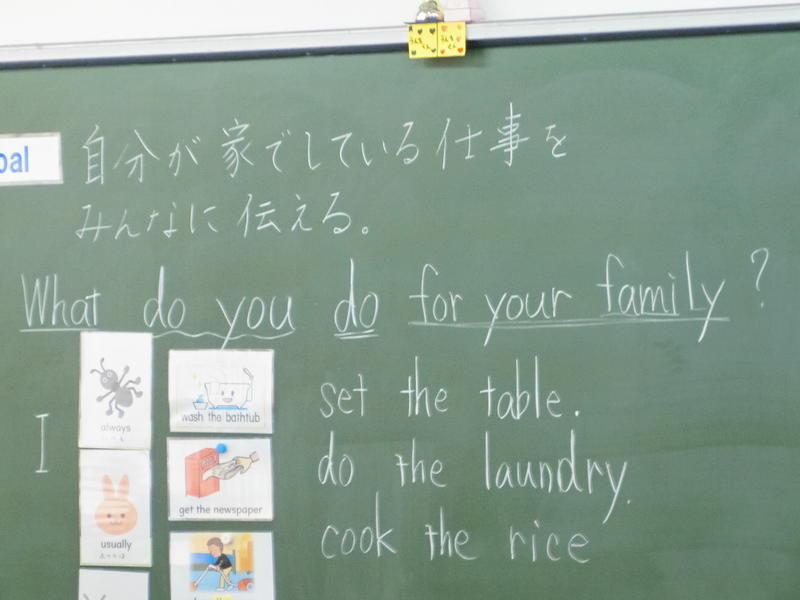 自分が家でしている仕事を
みんなに伝える。
What do you do for your family?
I
always
usually
wash the bathtub
get the newspaper
set the table.
do the laundry.
cook the rice